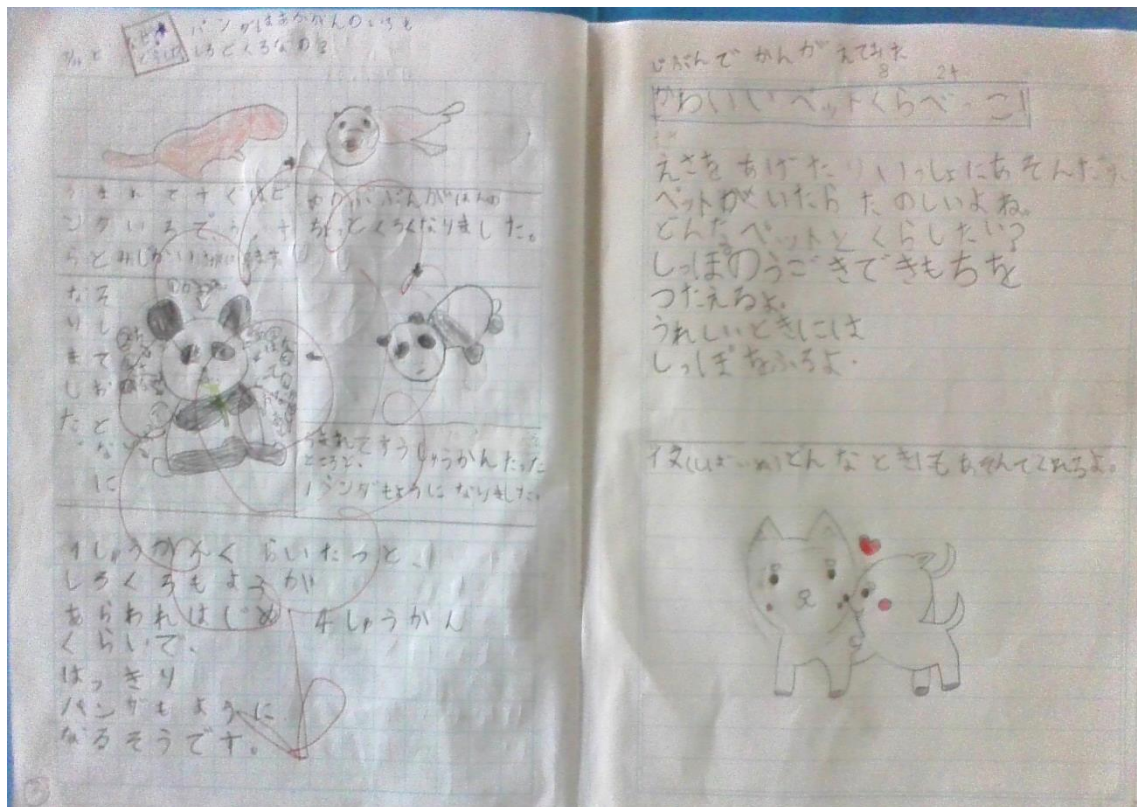 パンダはあかがんのいろも
しろとくろなの?
うまれてすぐはピ
ンクいろで、うっす
らとみじかい
ちょっとくろくなりました。
なそ
りし
まて
しお
たと
。な
に
うまれてすうしゅうかんたった
ところで、
パンダもように なりました。
1しゅうかんくらいたつと、
しろくろもようが
あらわれはじめ 4しゅうかん
くらいで、
はっきり
パンダもように
なるそうです。
じぶんで かんがえてみた
8 24
かわいいペットくらべっこ!
えさを あげたり いっしょにあそんだり
ペットがいたら たのしいよね。
どんな ペットと くらしたい?
しっぽのうごきできもちを
つたえるよ。
うれしいときには
しっぽをふるよ。
イヌ(しばいぬ)どんなときもあそんでくれるよ。